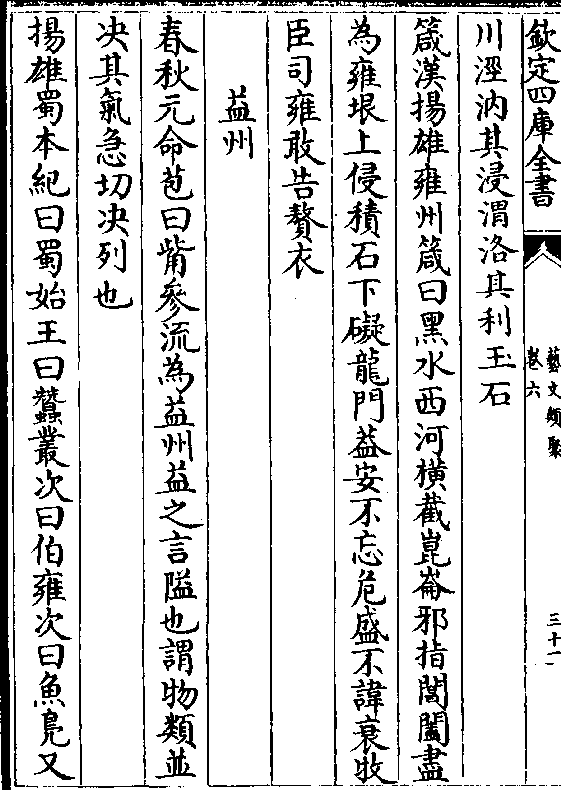 欽定四庫全書
藝文類聚
卷六
三十一
川涇汭其浸渭洛其利玉石
箴漢揚雄雍州箴曰黑水西河橫截崑崙邪指閶闔盡
為雍垠上侵積石下礙龍門葢安不忘危盛不諱衰牧
臣司雍敢告贅衣
益州
春秋元命苞曰觜參流為益州益之言隘也謂物類並
决其氣急切决列也
揚雄蜀本紀曰蜀始王曰蠶叢次曰伯雍次曰魚鳧又